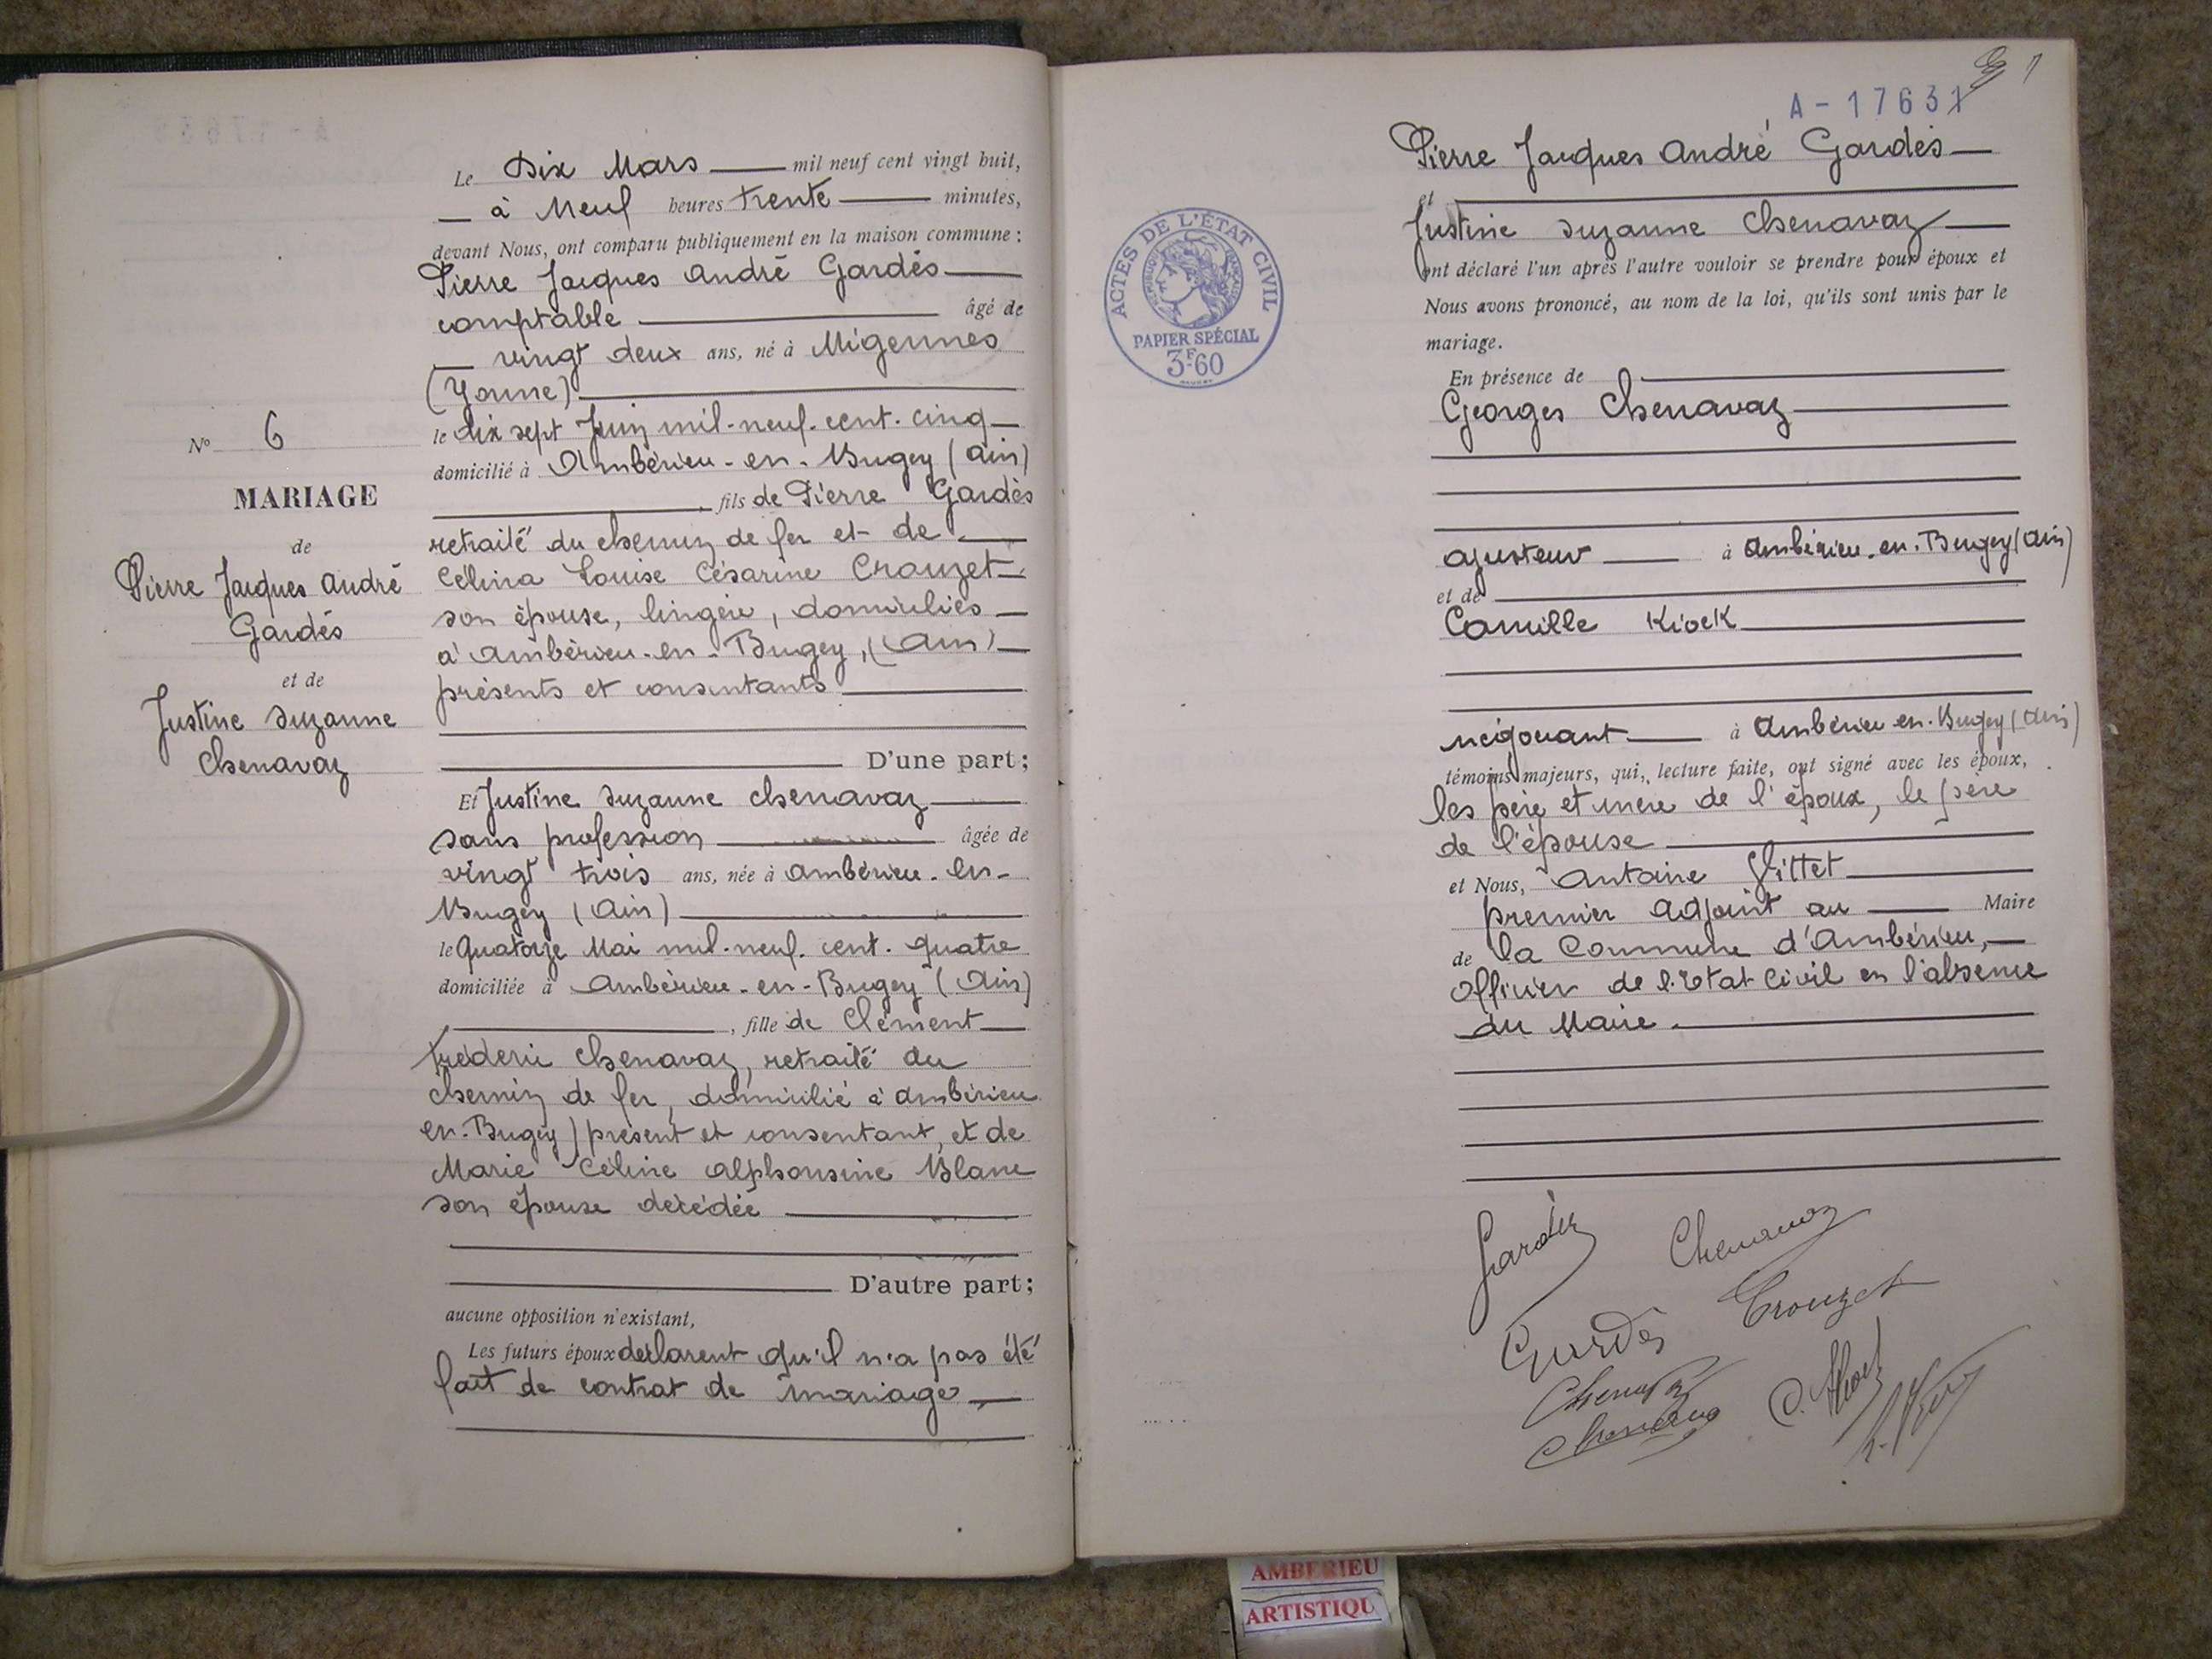 Le Dix Mars mil neuf cent vingt huit,
à Neuf heures trente minutes,
devant Nous, ont comparu publiquement en la maison commune :
Pierre Jacques André Gardès
comptable âgé de
vingt deux ans, né à Migennes
(Yonne)
le dix sept Juin mil-neuf-cent-cinq
domicilié à Ambérieu-en-Bugey (Ain)
, fils de Pierre Gardès
retraité du chemin de fer et de
Célina Louise Césarine Crouzet
son épouse, lingère, domiciliés
à Ambérieu-en-Bugey, (Ain)
présents et consentants
D'une part;
N° 6
MARIAGE
de
Pierre Jacques André
Gardès
et de
Justine Suzanne
Chenavaz
Et Justine Suzanne Chenavaz
sans profession âgée de
vingt trois ans, née à Ambérieu-en-
Bugey (Ain)
le Quatorze Mai mil-neuf-cent-quatre
domiciliée à Ambérieu-en-Bugey (Ain)
, fille de Clément
Frédéric Chenavaz, retraité du
chemin de fer, domicilié à Ambérieu
en-Bugey) présent et consentant, et de
Marie Céline Alphonsine Blanc
son épouse décédée
D'autre part;
aucune opposition n'existant,
Les futurs époux déclarent qu'il n'a pas été
fait de contrat de mariage
A-17631
Pierre Jacques André Gardès
et
Justine Suzanne Chenavaz
ont déclaré l'un après l'autre vouloir se prendre pour époux et
Nous avons prononcé, au nom de la loi, qu'ils sont unis par le
mariage.
ACTES DE L'ÉTAT CIVIL
RÉPUBLIQUE FRANÇAISE
PAPIER SPÉCIAL
3F60
En présence de
Georges Chenavaz
ajusteur à Ambérieu-en-Bugey (Ain)
et de
Camille Kiock
négociant à Ambérieu-en-Bugey (Ain)
témoins majeurs, qui, lecture faite, ont signé avec les époux,
les père et mère de l'époux, le père
de l'épouse
et Nous, Antoine Vittet
premier adjoint au Maire
de la Commune d'Ambérieu,
Officier de l'Etat Civil en l'absence
du Maire.
Gardès Chenavaz
Gardès Crouzet
Chenavaz
Chenavaz
AMBERIEU
ARTISTIQU